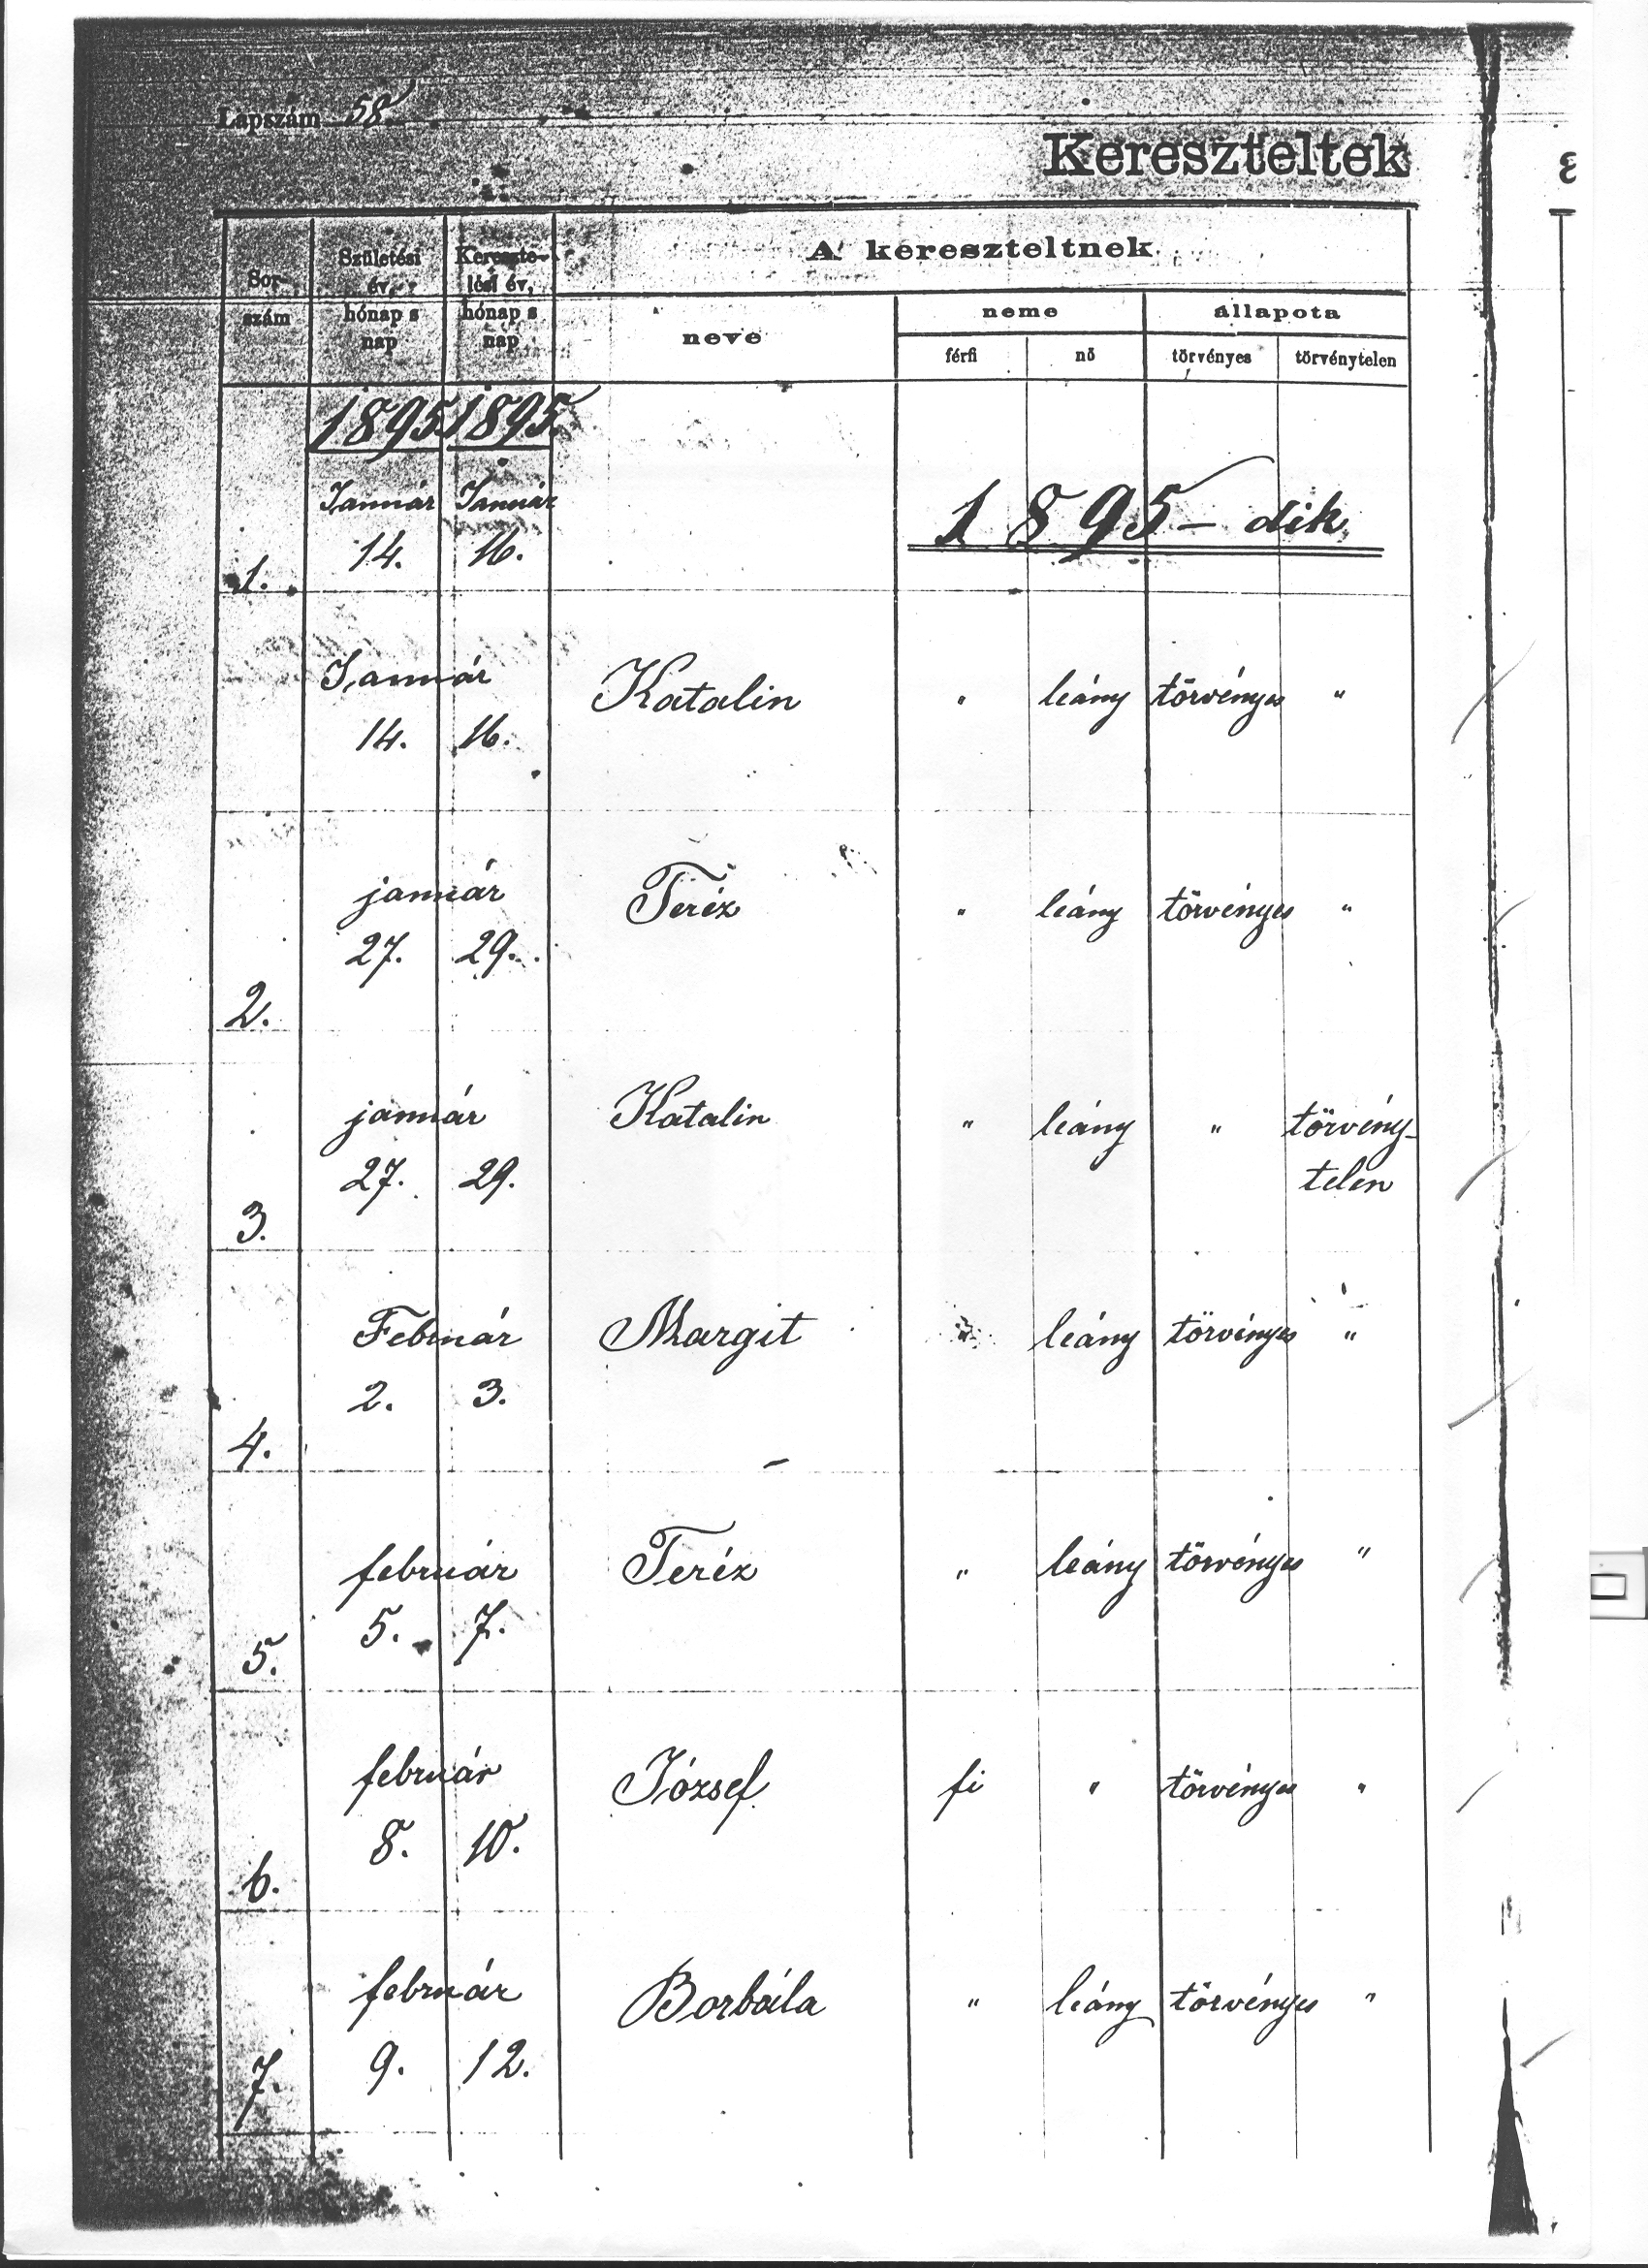 Lapszám 58
Kereszteltek
Sor-
szám
Születési
év,
hónap s
nap
Kereszte-
lési év,
hónap s
nap
A kereszteltnek
neve
neme
állapota
férfi
nő
törvényes
törvénytelen
1895. 1895.
Január Január
1895-dik
14. 16.
1.
Január
Katalin " leány törvényes "
14. 16.
január
Teréz " leány törvényes "
27. 29.
2.
január
Katalin " leány " törvény-
27. 29. telen
3.
Február Margit leány törvényes "
2. 3.
4.
február Teréz " leány törvényes "
5. 7.
5.
február József fi " törvényes "
8. 10.
6.
február Borbála " leány törvényes "
9. 12.
7.